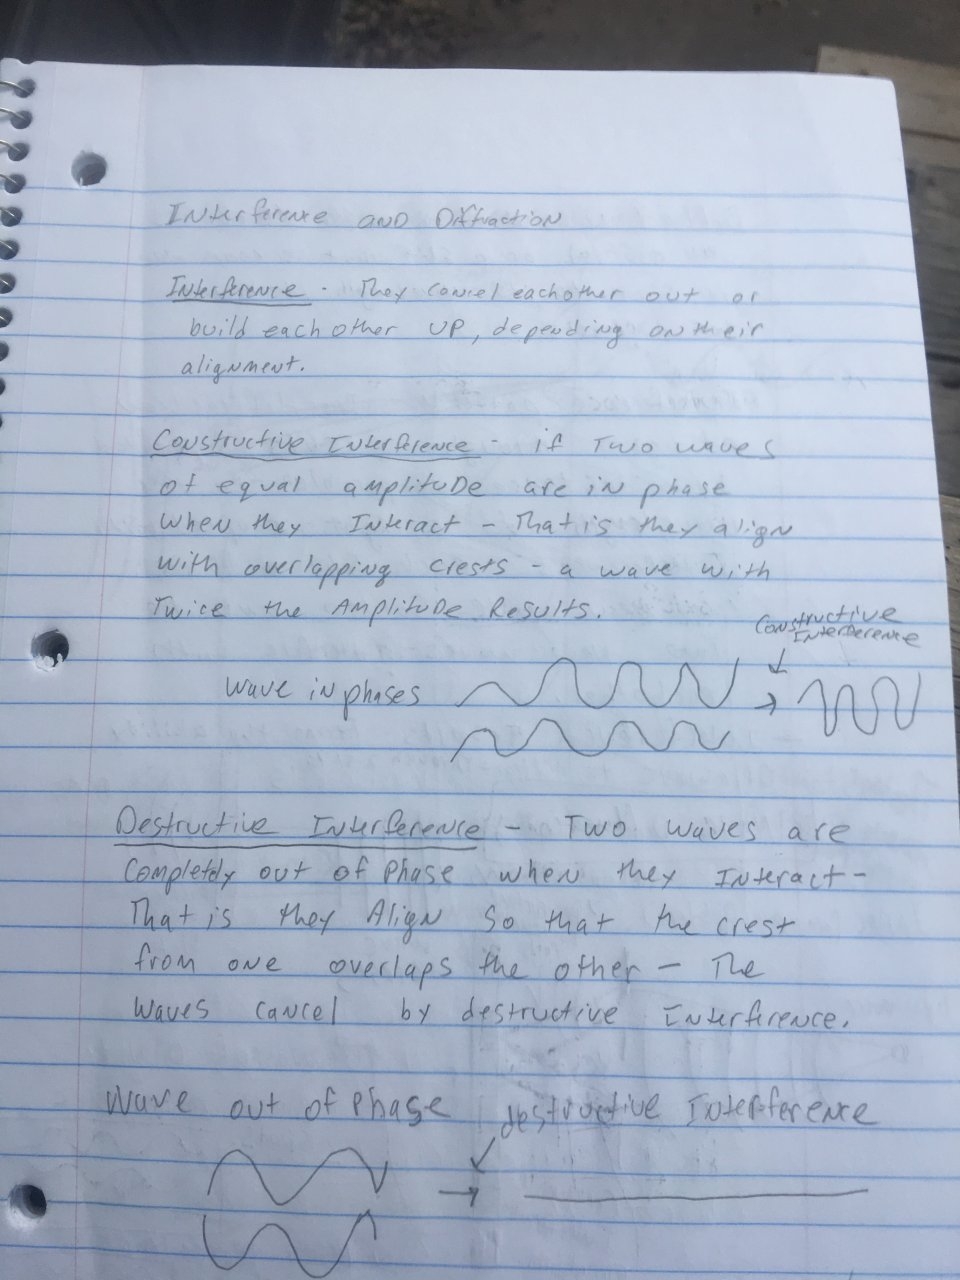 Interference and Diffraction
Interference - They cancel eachother out or
build each other up, depending on their
alignment.
Constructive Interference - if Two waves
of equal amplitude are in phase
when they Interact - That is they align
with overlapping crests - a wave with
Twice the Amplitude Results.
Constructive
Interference
Wave in phases
Destructive Interference - Two waves are
Completely out of Phase when they Interact -
That is they Align So that the crest
from one overlaps the other - The
Waves cancel by destructive Interference.
Wave out of Phase destructive Interference